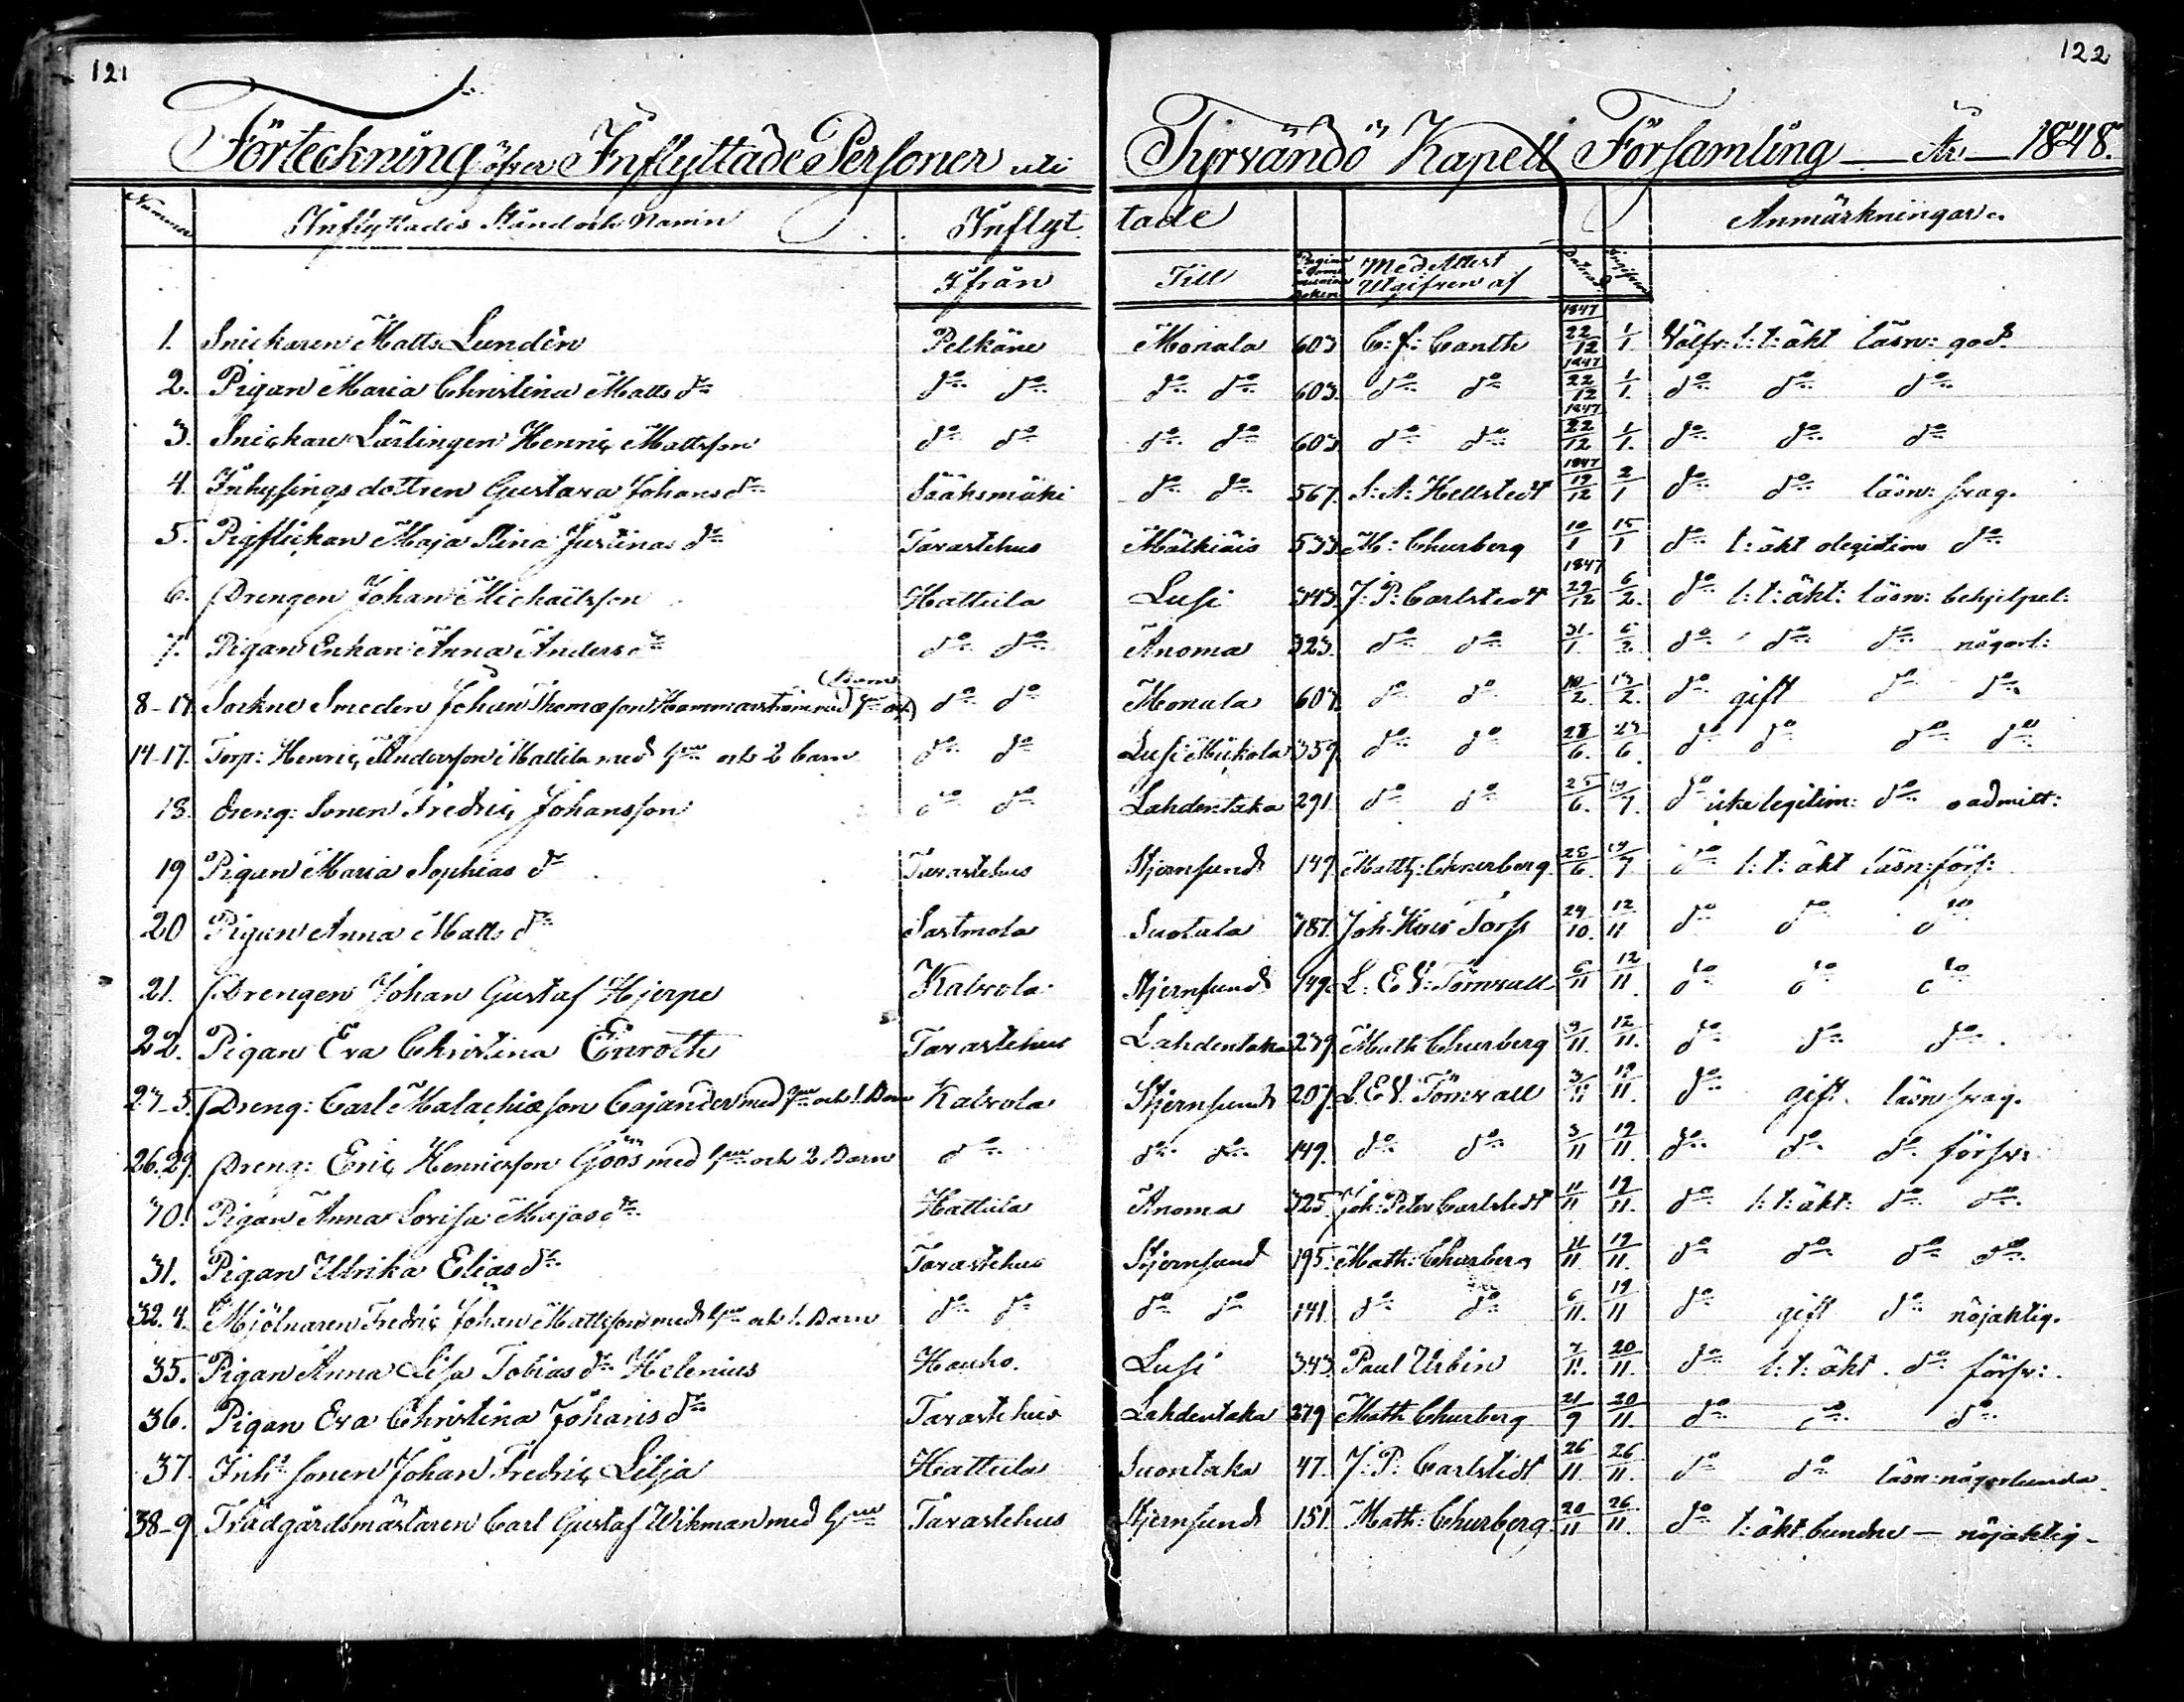 121
122
Förteckning öfver Inflyttade Personer uti Tyrvändö Kapell Församling År 1848.
Nummer Inflyttades Stånd och Namn Inflyt tade Anmärkningar.
Ifrån Till Pagina Med Attest Utgifven af Datum
1. Snickaren Matts Lundên Pelkäne Monala 603 C: J: Canth 1847 22/12 1/1 Välfr: l: t: äkt läsn: god.
2. Pigan Maria Christina Matts dr do do do do 603. do do 1847 22/12 1/1. do do do
3. Snickare Lärlingen Henric Mattsson do do do do 603 do do 1847 22/12 1/1. do do do
4. Inhysings dottren Gustava Johans dr Sääksmäki do do 567. S: A: Hellstedt 1847 19/12 2/1 do do läsn: svag.
5. Pigflickan Maja Stina Justinas dr Tavastehus Mälkiäis 533 M: Churberg 10/1 15/1 do t: äkt olegitim do
6. Drengen Johan Michaelsson Hattula Lusi 343. J: P: Carlstedt 1847 29/12 6/2. do l: t: äkt: läsn: behjelpel:
7. Pigan Enkan Anna Anders dr do do Anoma 323. do do 31/1. 6/2. do do do någorl:
8-13. Sockne Smeden Johan Thomasson Hammarström med Hru och Barn do do Monala 607. do do 10/2. 13/2. do gift do do
14-17. Torp: Henric Andersson Mattila med Hru och 2 barn do do Lusi Mickola 359 do do 28/6. 29/6. do do do do
18. dreng: Sonen Fredric Johansson do do Lahdentaka 291 do do 25/6. /7. do icke legitim: do oadmitt:
19 Pigan Maria Sophias dr Tavastehus Stjernsund 149. Matth: Churberg 28/6. /7. do l: t: äkt läsn: förs:
20 Pigan Anna Matts dr Sastmola Suotala 187. Joh. Torss 24/10. 12/11 do do do
21. Drengen Johan Gustaf Hjerpe Kalvola Stjernsund 149. L: E: V: Törnvall 6/11 12/11. do do do
22. Pigan Eva Christina Enroth Tavastehus Lahdentaka 279. Math Churberg 9/11. 12/11. do do do
23-5. Dreng: Carl Malachiasson Cajander med Hru och 1. Barn Kalvola Stjernsund 207. L. E. V. Törnvall 3/11 19/11. do gift läsn svag.
26.29. Dreng: Eric Henricsson Göös med Hru och 2 Barn do do do 149. do do 3/11 19/11. do do do försv:
30. Pigan Anna Lovisa Majas dr Hattula Anoma 325. Joh: Peter Carlstedt 11/11 19/11. do l: t: äkt: do do
31. Pigan Ulrika Elias dr Tavastehus Stjernsund 195. Math: Churberg 11/11. 19/11. do do do do
32.4. Mjölnaren Fredric Johan Mattsson med Hru och 1. Barn do do do do 141. do do 6/11. 19/11 do gift do nöjaktig.
35. Pigan Anna Lisa Tobias dr Helenius Hauho. Lusi 343 Paul Urbin 7/11. 20/11. do l: t: äkt. do försv:
36. Pigan Eva Christina Johans dr Tavastehus Lahdentaka 279 Math Churberg 21/9 20/11. do do do
37. Inhs sonen Johan Fredric Lilja Hattula Suontaka 47. J: P: Carlstedt 26/11. 26/11. do do läsn: någorlunda
38-9. Trädgårdsmästaren Carl Gustaf Wikman med Hru Tavastehus Stjernsund 151 Math: Churberg 20/11 26/11. do t: äkt bunden — nöjaktig